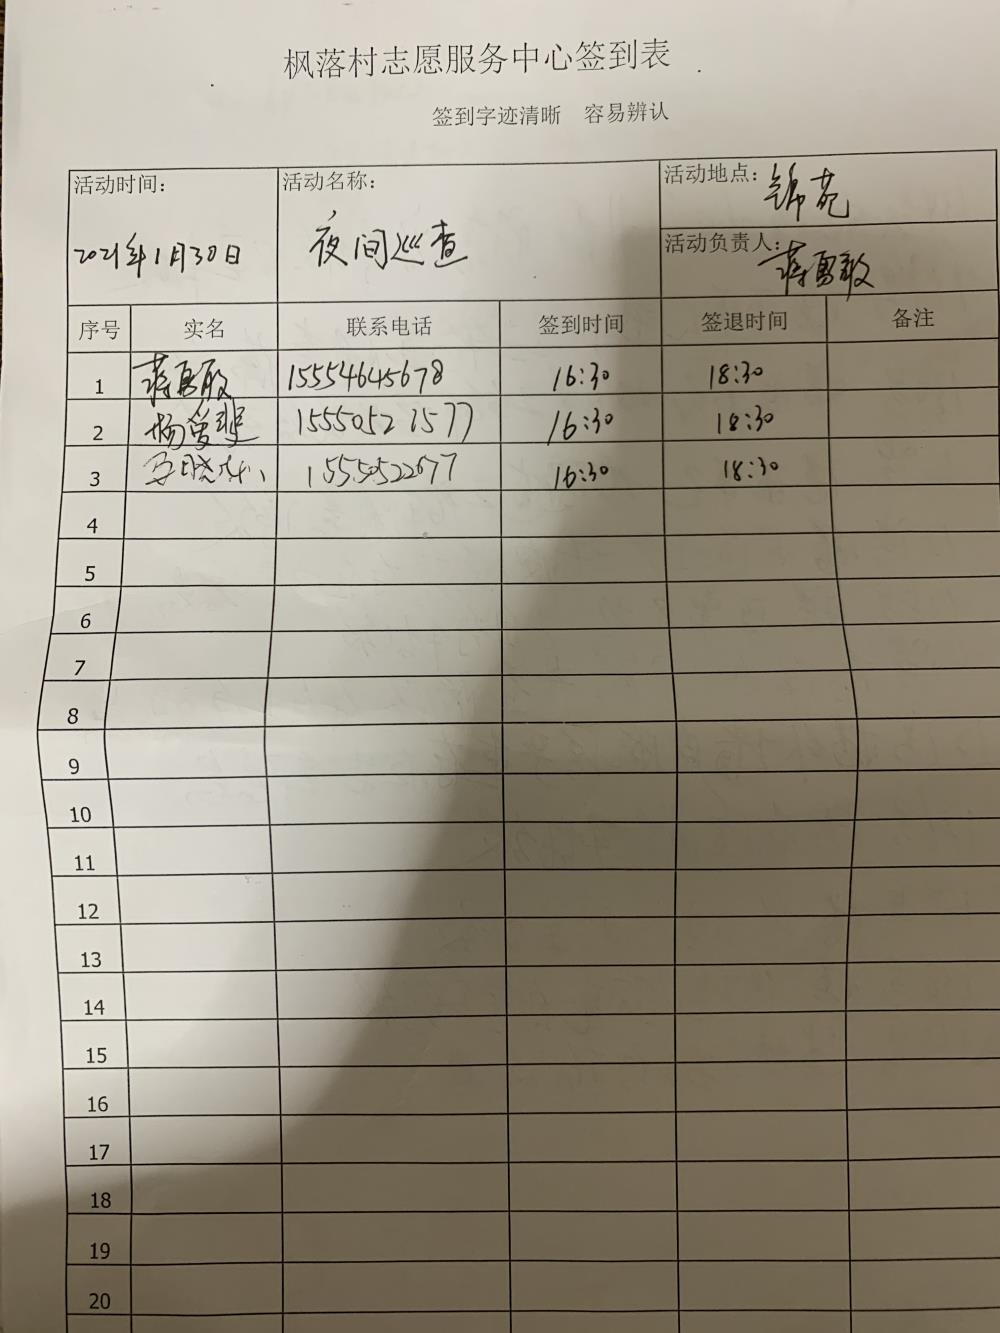 枫落村志愿服务中心签到表
签到字迹清晰 容易辨认
活动时间: 活动名称: 活动地点: 锦苑
2021年1月30日 夜间巡查 活动负责人: 蒋勇敏
序号 实名 联系电话 签到时间 签退时间 备注
1 蒋勇敏 15554645678 16:30 18:30
2 杨爱 15550521577 16:30 18:30
3 15550522677 16:30 18:30
4
5
6
7
8
9
10
11
12
13
14
15
16
17
18
19
20